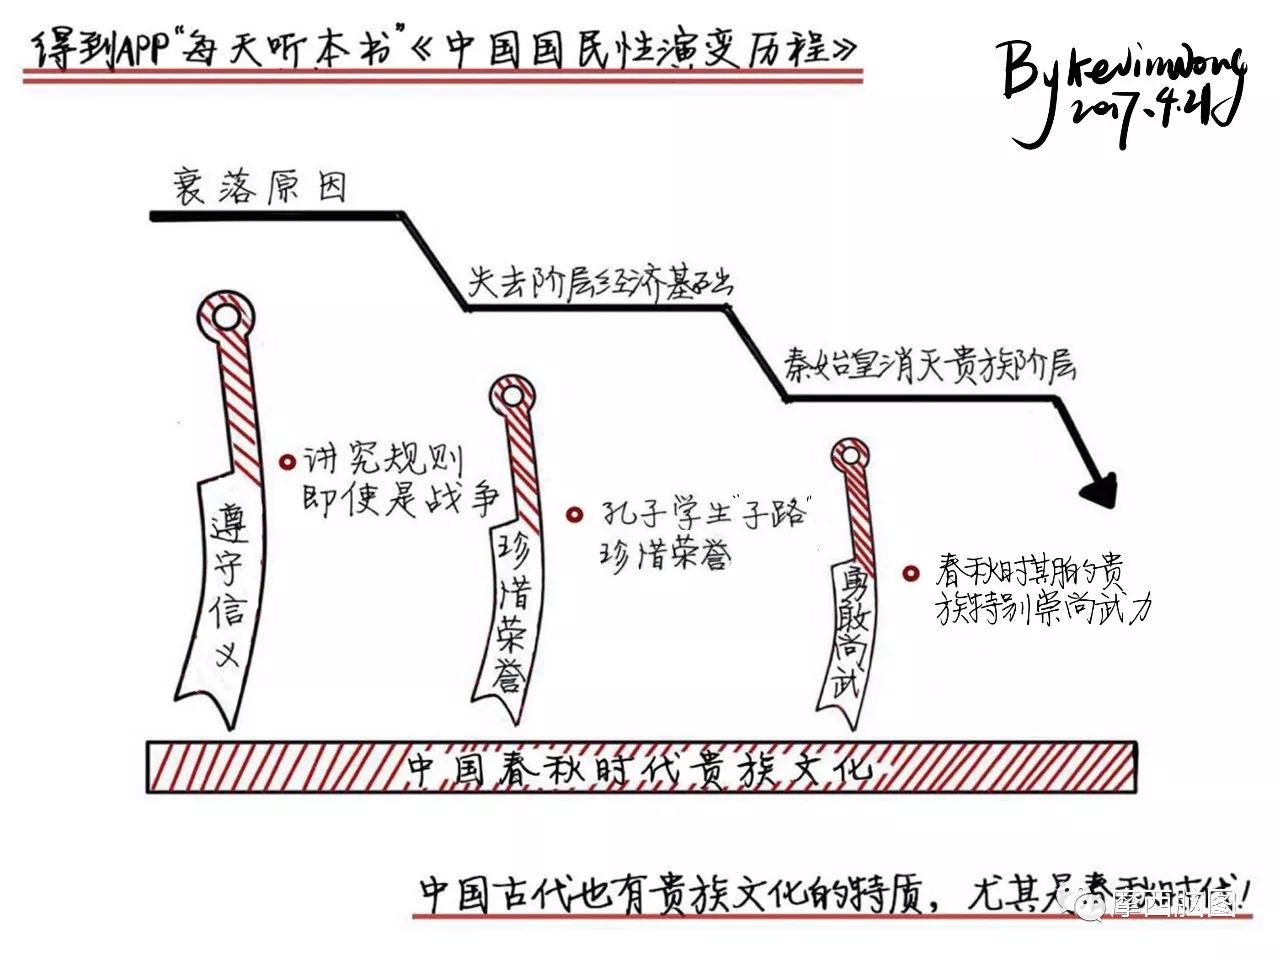 得到APP“每天听本书”《中国国民性演变历程》
By Kevin Wong
2017.4.21
衰落原因
失去阶层经济基础
秦始皇消灭贵族阶层
讲究规则
即使是战争
遵守信义
孔子学生"子路"
珍惜荣誉
珍惜荣誉
春秋时其的贵
族特别崇尚武力
勇敢尚武
中国春秋时代贵族文化
中国古代也有贵族文化的特质，尤其是春秋时代！
摩西脑图